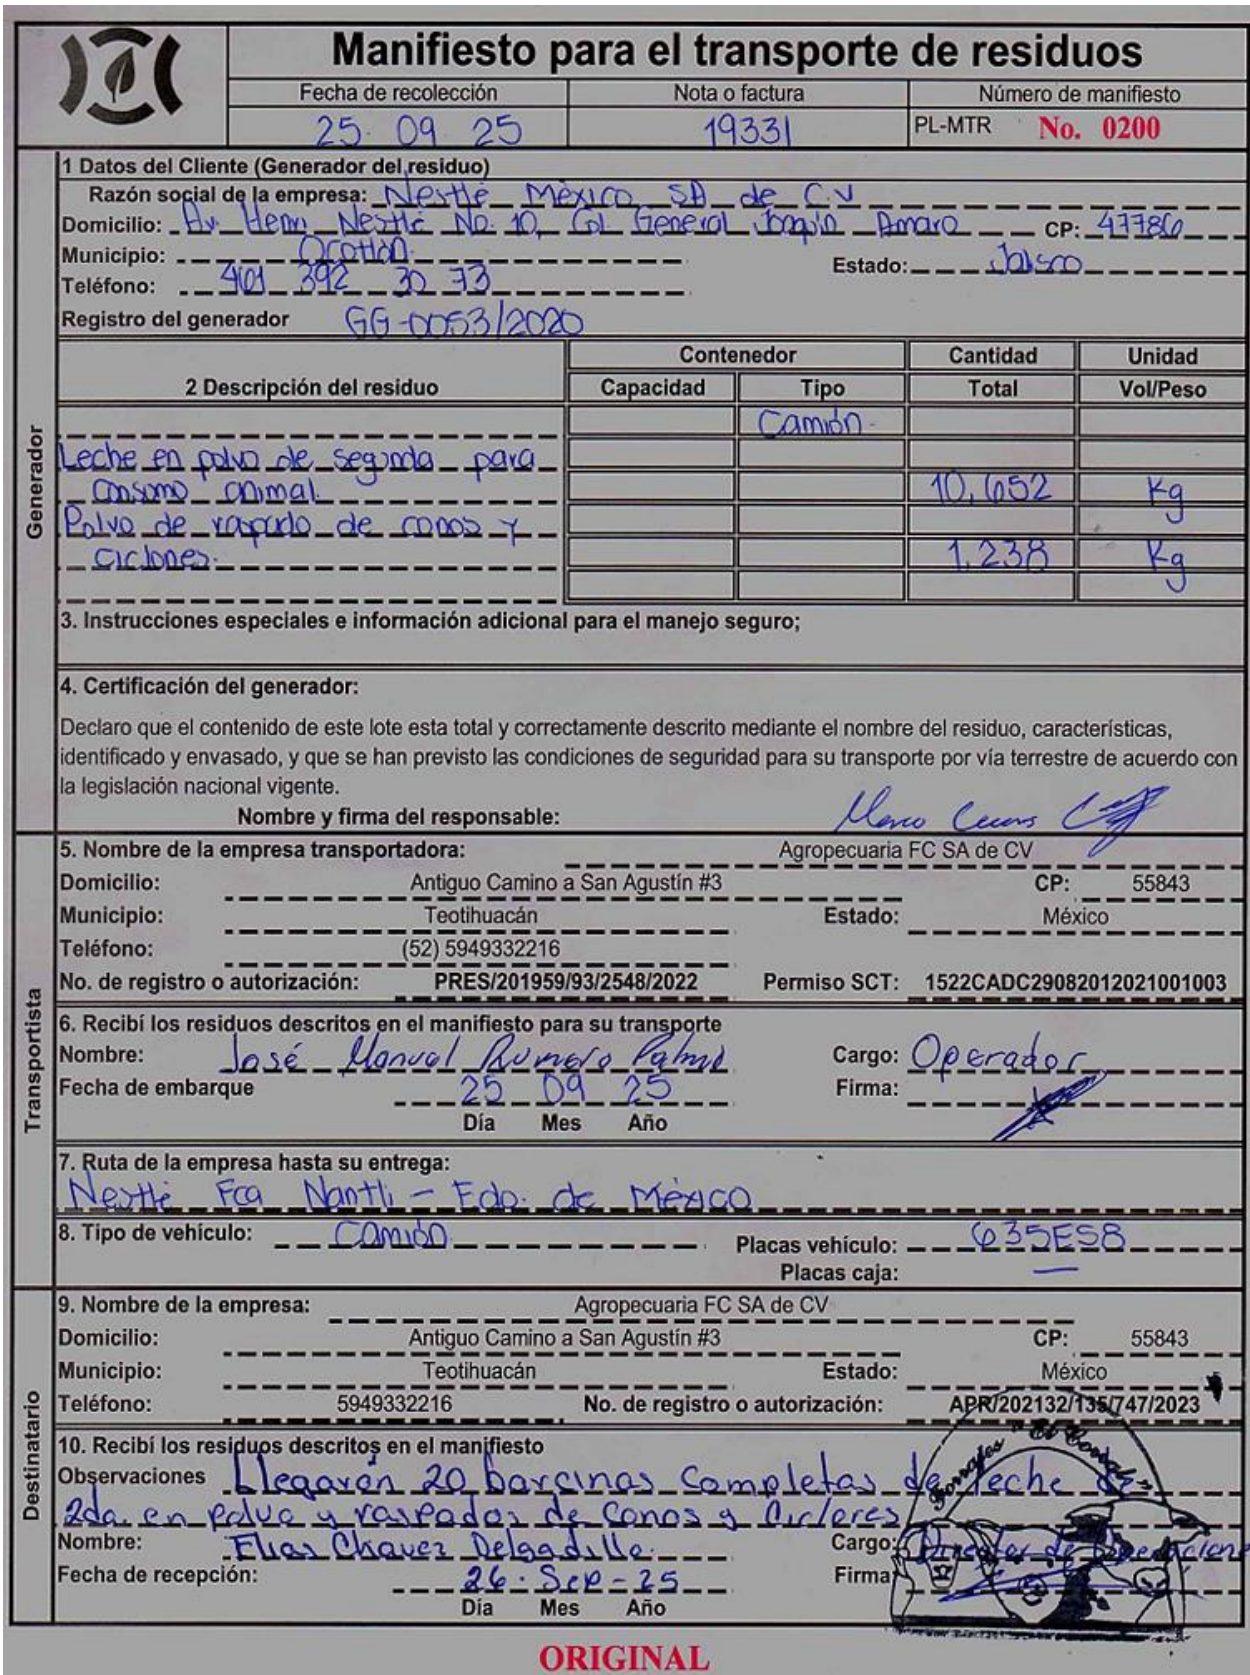 Manifiesto para el transporte de residuos
Fecha de recolección Nota o factura Número de manifiesto
25 09 25 19331 PL-MTR No. 0200
Generador
1 Datos del Cliente (Generador del residuo)
Razón social de la empresa: Nestlé México SA de C.V
Domicilio: Av. Henri Nestlé No. 10, Col. General Joaquín Amaro CP: 47786
Municipio: Ocotlán. Estado: Jalisco
Teléfono: 392 30 73
Registro del generador GG-0053/2020
Contenedor Cantidad Unidad
2 Descripción del residuo Capacidad Tipo Total Vol/Peso
Camión.
Leche en polvo de segunda para
consumo animal. 10,652 Kg
Polvo de raspado de conos y
ciclones. 1,238 Kg
3. Instrucciones especiales e información adicional para el manejo seguro;
4. Certificación del generador:
Declaro que el contenido de este lote esta total y correctamente descrito mediante el nombre del residuo, características,
identificado y envasado, y que se han previsto las condiciones de seguridad para su transporte por vía terrestre de acuerdo con
la legislación nacional vigente.
Nombre y firma del responsable:
Transportista
5. Nombre de la empresa transportadora: Agropecuaria FC SA de CV
Domicilio: Antiguo Camino a San Agustín #3 CP: 55843
Municipio: Teotihuacán Estado: México
Teléfono: (52) 5949332216
No. de registro o autorización: PRES/201959/93/2548/2022 Permiso SCT: 1522CADC29082012021001003
6. Recibí los residuos descritos en el manifiesto para su transporte
Nombre: José Manuel Romero Cargo: Operador
Fecha de embarque 25 09 25 Firma:
Día Mes Año
7. Ruta de la empresa hasta su entrega:
Nestlé Fca Nantli - Edo. de México
8. Tipo de vehículo: Camión Placas vehículo: 635ES8
Placas caja: —
Destinatario
9. Nombre de la empresa: Agropecuaria FC SA de CV
Domicilio: Antiguo Camino a San Agustín #3 CP: 55843
Municipio: Teotihuacán Estado: México
Teléfono: 5949332216 No. de registro o autorización: APR/202132/135/747/2023
10. Recibí los residuos descritos en el manifiesto
Observaciones Llegarón 20 barcinas Completas de leche de
2da. en polvo y raspados de Conos y
Nombre: Elias Chavez Delgadillo. Cargo: Director de Operaciones
Fecha de recepción: 26 - Sep - 25 Firma
Día Mes Año
ORIGINAL